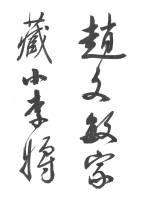 趙文敏家
藏小李將